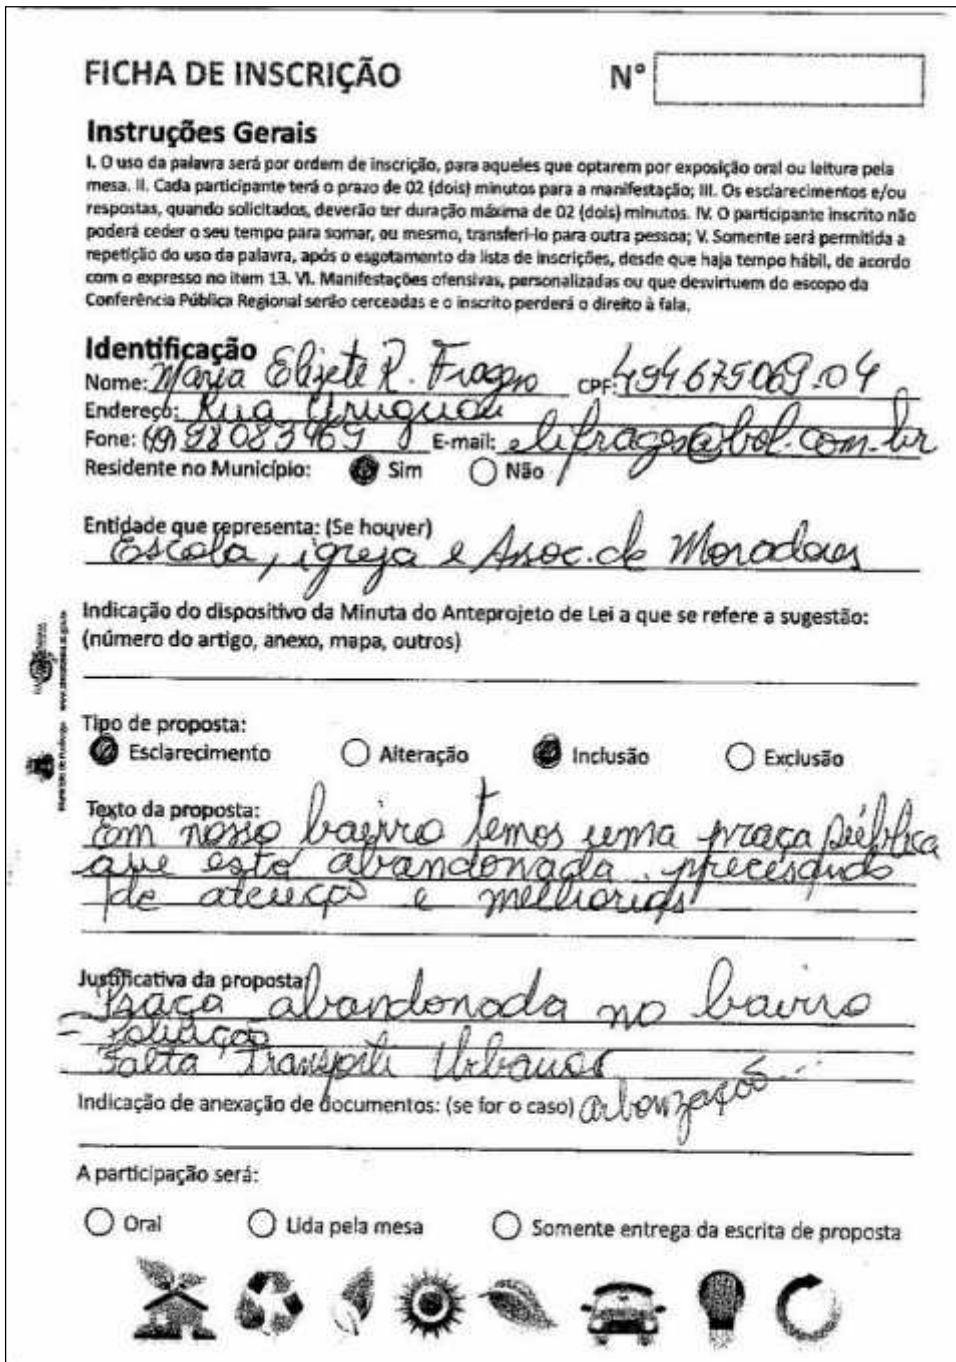 FICHA DE INSCRIÇÃO
N°
Instruções Gerais
I. O uso da palavra será por ordem de inscrição, para aqueles que optarem por exposição oral ou leitura pela
mesa. II. Cada participante terá o prazo de 02 (dois) minutos para a manifestação; III. Os esclarecimentos e/ou
respostas, quando solicitados, deverão ter duração máxima de 02 (dois) minutos. IV. O participante inscrito não
poderá ceder o seu tempo para somar, ou mesmo, transferi-lo para outra pessoa; V. Somente será permitida a
repetição do uso da palavra, após o esgotamento da lista de inscrições, desde que haja tempo hábil, de acordo
com o expresso no item 13. VI. Manifestações ofensivas, personalizadas ou que desvirtuem do escopo da
Conferência Pública Regional serão cerceadas e o inscrito perderá o direito à fala.
Identificação
Nome: Maria Elizete R. Fragoso CPF: 494675069.04
Endereço: Rua Uruguai
Fone: (49) 98083469 E-mail: elifragoso@bol.com.br
Residente no Município: Sim Não
Entidade que representa: (Se houver)
Escola, igreja e Assoc. de Moradores
Indicação do dispositivo da Minuta do Anteprojeto de Lei a que se refere a sugestão:
(número do artigo, anexo, mapa, outros)
Tipo de proposta:
Esclarecimento Alteração Inclusão Exclusão
Texto da proposta:
Em nosso bairro temos uma praça pública
que está abandonada. precisando
de atenção e melhorias
Justificativa da proposta:
Praça abandonada no bairro
- Poluição
- Falta Transporte Urbanos
Indicação de anexação de documentos: (se for o caso) arborização...
A participação será:
Oral Lida pela mesa Somente entrega da escrita de proposta